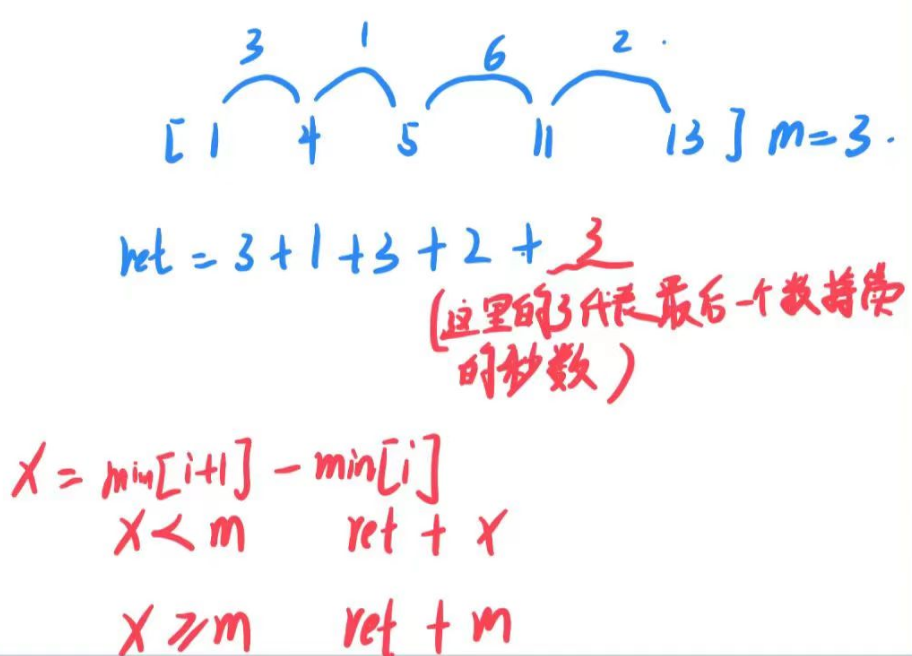 3 1 6 2
[ 1 4 5 11 13 ] m=3.
ret = 3+1+3+2+3
(这里的3代表最后一个数持续
的秒数)
X = min[i+1] - min[i]
X < m ret + X
X ≥ m ret + m